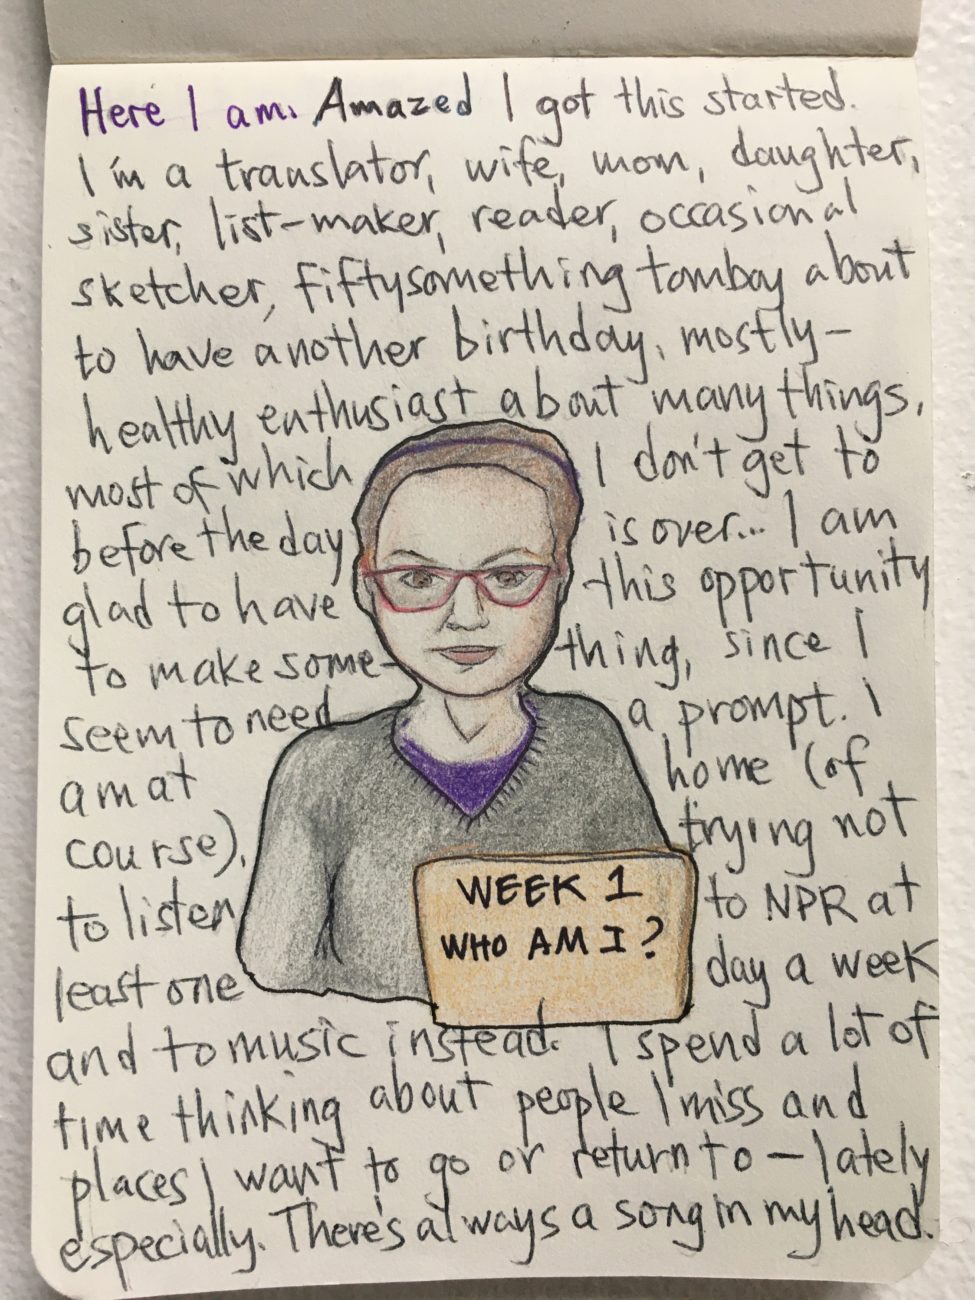 Here I am. Amazed I got this started.
I'm a translator, wife, mom, daughter,
sister, list-maker, reader, occasional
sketcher, fiftysomething tomboy about
to have another birthday, mostly-
healthy enthusiast about many things,
most of which I don't get to
before the day is over... I am
glad to have this opportunity
to make some- thing, since I
seem to need a prompt. I
am at home (of
course), trying not
to listen to NPR at
least one day a week
and to music instead. I spend a lot of
time thinking about people I miss and
places I want to go or return to – lately
especially. There's always a song in my head.
WEEK 1
WHO AM I?